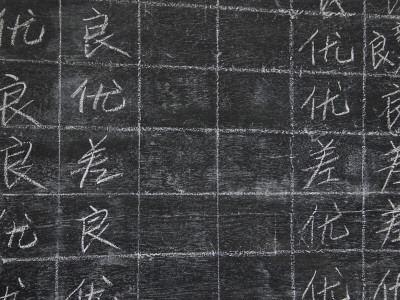 优 良 优 良
良 优 优 良
良 差 差 差
优 良 优 差
优 优 优 优